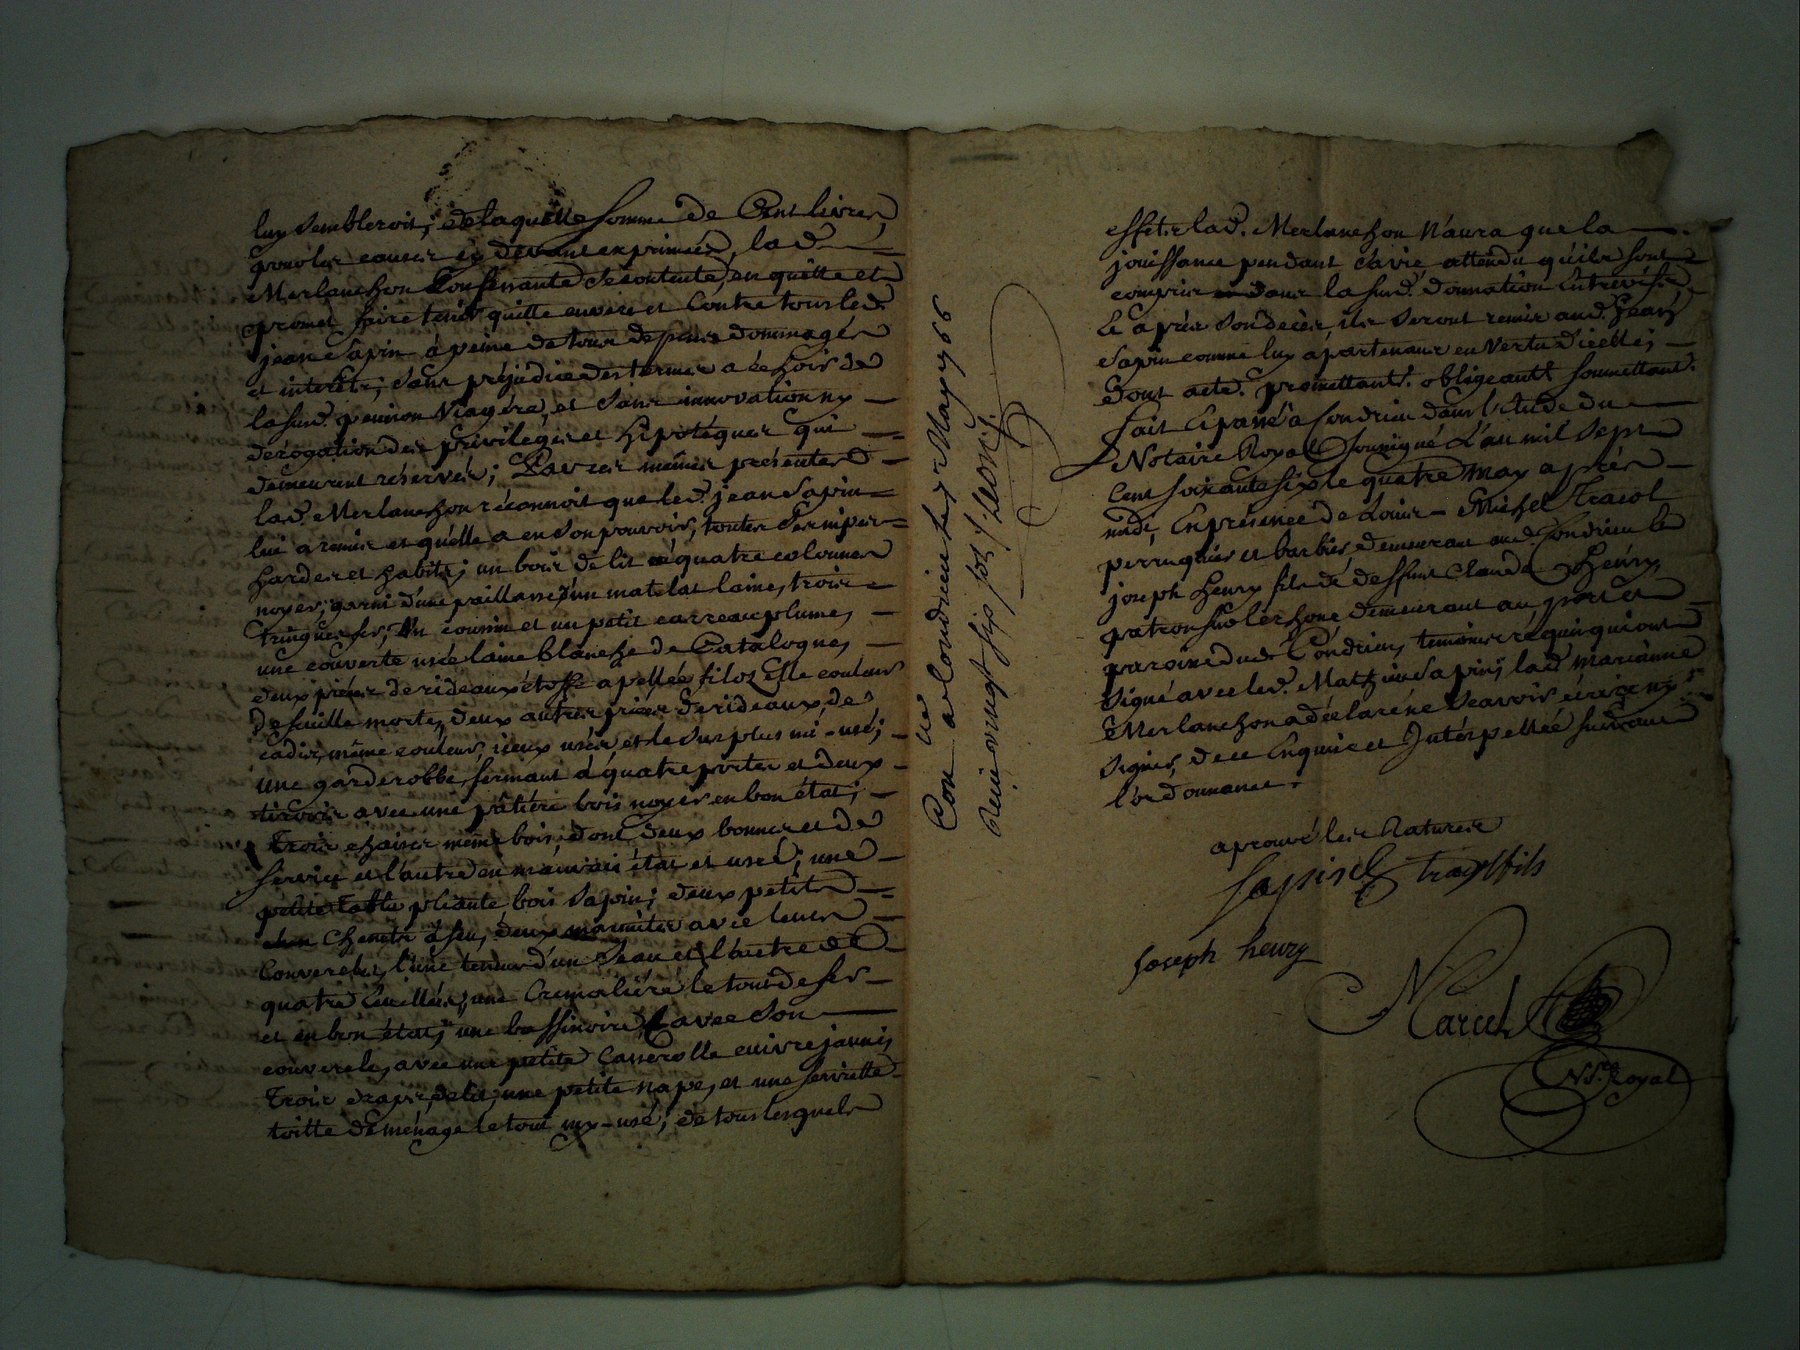 luy sembleroit; de laquelle somme de Cent livres,
pour les causes cy devant exprimées, lad.
Merlanchon Confessante se contente, en quitte et
promet faire tenir quitte envers et Contre tous led.
jean Sapin à peine de tous depens dommages
et interêts; sans préjudice des termes a échoir de
la susd. pension Viagére, et sans innovation ny
dérogation des privileges et hipotéques qui
demeurent réservés; Par ces mêmes présentes
lad. Merlanchon réconnoit que led. jean Sapin
lui a remis et qu'elle a en son pouvoir, toutes ses niper
hardes et habits; un bois de lit à quatre colonnes
noyer, garni d'une paillasse, d'un matelat laine, trois
tringues fer, Un coussin et un petit carreau plume,
une couverte usée laine blanche de Catalogne,
deux pièces de rideaux étoffe apellée filozelle couleur
de feuille morte, deux autres pièces de rideaux de
cadis, même couleur, iceux usés et le surplus mi-usé;
une garderobbe fermant à quatre portes et deux
tiroirs avec une pâtiére bois noyer en bon état;
Trois chaises même bois, dont deux bonnes et de
service et l'autre en mauvais état et usée; une
petite table pliante bois sapin; deux petits
Chenets à feu, deux marmites avec leurs
Couvercles, l'une tenant d'un Seau et l'autre de
quatre Ecuellées, une Cremaliére le tout de fer
et en bon état, une bassinoire avec son
couvercle, avec une petite Casserolle cuivre jaune,
Trois draps de lit, une petite nape, et une serviette
toille de ménage le tout my-usé; de tous lesquels
Con[tro]lé a Condrieu le 7 May 1766
Reçu vingt six sols
effets lad. Merlanchon N'aura que la
jouissance pendant sa vie attendu qu'ils sont
compris dans la susd. donnation Entrevifs
Et après son decès, ils seront remis aud. Jean
Sapin comme luy apartenant en Vertu d'icelle;
Dont acte. promettant. obligeant soumettant.
fait Et passé à Condrieu dans l'Etude du
Notaire Royal Soussigné L'an mil Sept
Cent soixante six le quatre May après
midi, En présence de Louis Michel Tracol
perruquier et barbier, demeurant aud. Condrieu Et
joseph Henry fils de deffunt Claude Henry,
patron sur le rhone, demeurant au port et
paroisse dud. Condrieu, temoins réquis qui ont
Signé avec led. Mathieu Sapin; lad. marianne
Merlanchon a déclaré ne Sçavoir écrire ny
Signer, de ce Enquise et Intérpellée suivant
l'ordonnance.
aprouvé les Ratures
Sapin tracol fils
Joseph henry
Marcel
Nre. Royal